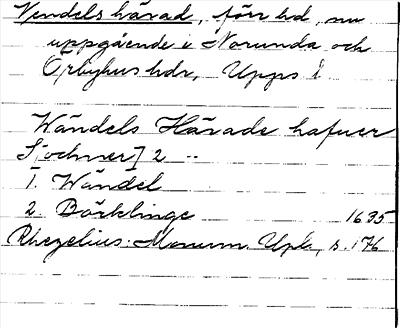 Vendels härad, förr hd, nu
uppgående i Norunda och
Örbyhus hdr, Upps l
Wändels Härade hafuer
S[ochner] 2 --
1. Wändel
2. Börklinge 1635
Rhezelius: Monum. Upl., s. 176